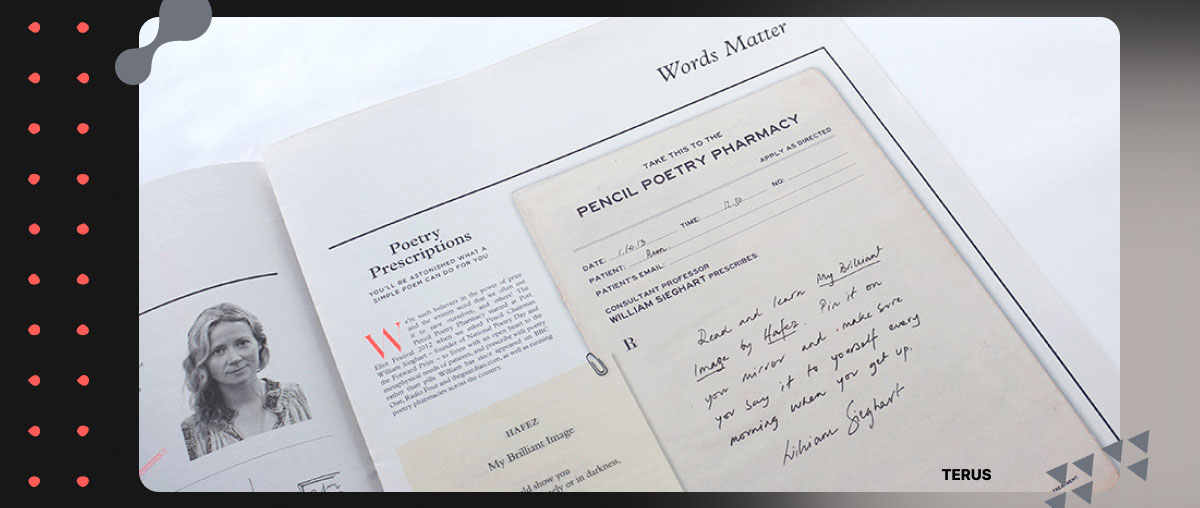 Words Matter
Poetry
Prescriptions
YOU'LL BE ASTONISHED WHAT A
SIMPLE POEM CAN DO FOR YOU
We're such believers in the power of print
and the written word that we often use
it to save ourselves, and others! The
Pencil Poetry Pharmacy started at Port
Eliot Festival 2012 when we asked Pencil Chairman
William Sieghart – founder of National Poetry Day and
the Forward Prize – to listen with an open heart to the
metaphysical needs of patients, and prescribe with poetry
rather than pills. William has since appeared on BBC
One, Radio Four and theguardian.com, as well as running
poetry pharmacies across the country.
HAFEZ
My Brilliant Image
ld show you
ly or in darkness,
TAKE THIS TO THE
PENCIL POETRY PHARMACY
APPLY AS DIRECTED
DATE: TIME: NO:
PATIENT:
PATIENT'S EMAIL:
CONSULTANT PROFESSOR
WILLIAM SIEGHART PRESCRIBES:
R
Read and learn My Brilliant
Image by Hafez. Pin it on
your mirror and make sure
you say it to yourself every
morning when you get up.
William Sieghart
TERUS